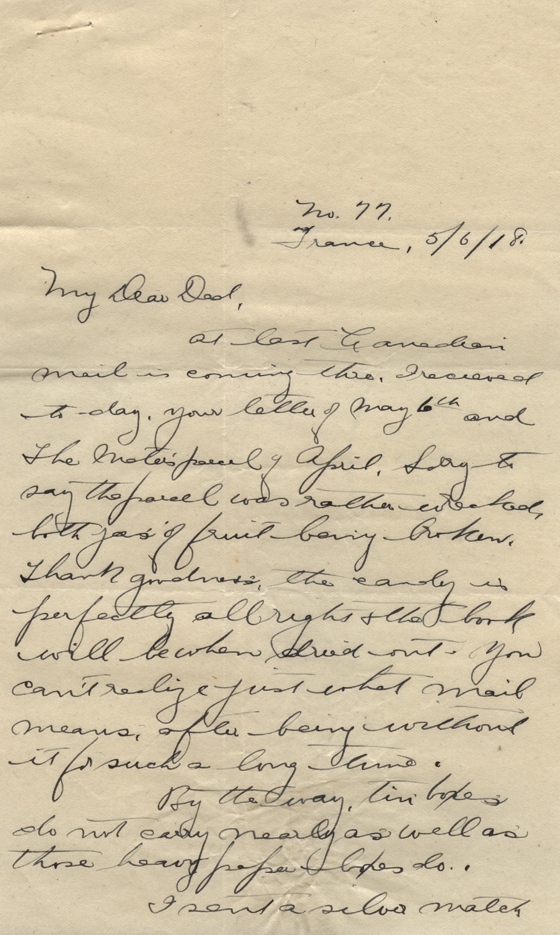 No. 77.
France, 5/6/18.
My Dear Dad,
At last Canadian
mail is coming thro. I recieved
to-day, your letter of May 6th and
The Mater's parcel of April. Sorry to
say the parcel was rather wrecked,
both jars of fruit being broken.
Thank goodness, the candy is
perfectly all right & the book
will be when dried out. You
can't realize just what mail
means, after being without
it for such a long time.
By the way, tin boxes
do not carry nearly as well as
those heavy paper boxes do..
I sent a silver match